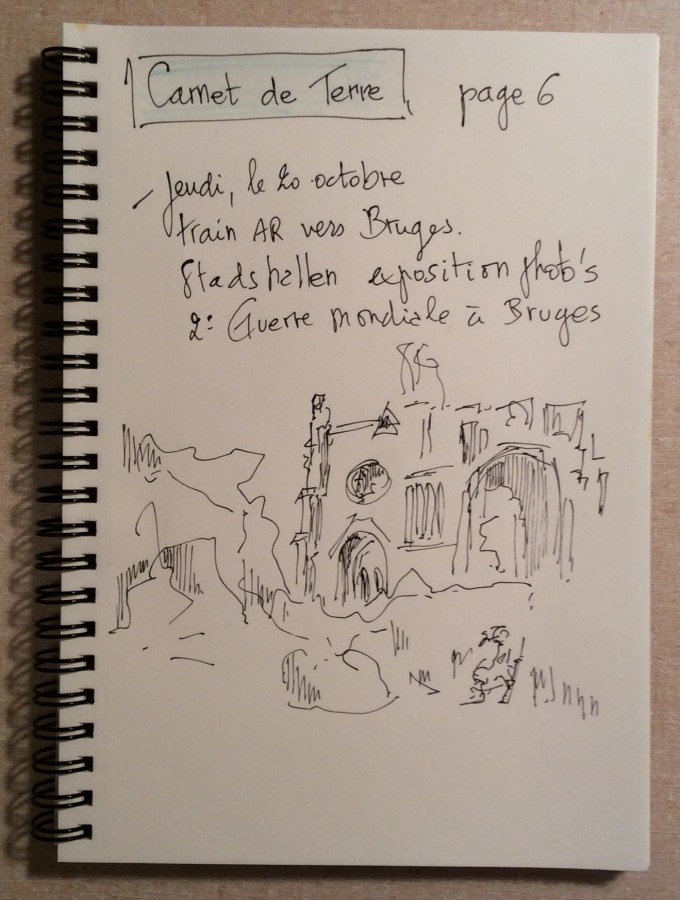 Carnet de Terre page 6
- Jeudi, le 20 octobre
train AR vers Bruges.
Stadshallen exposition photo's
2e Guerre mondiale à Bruges